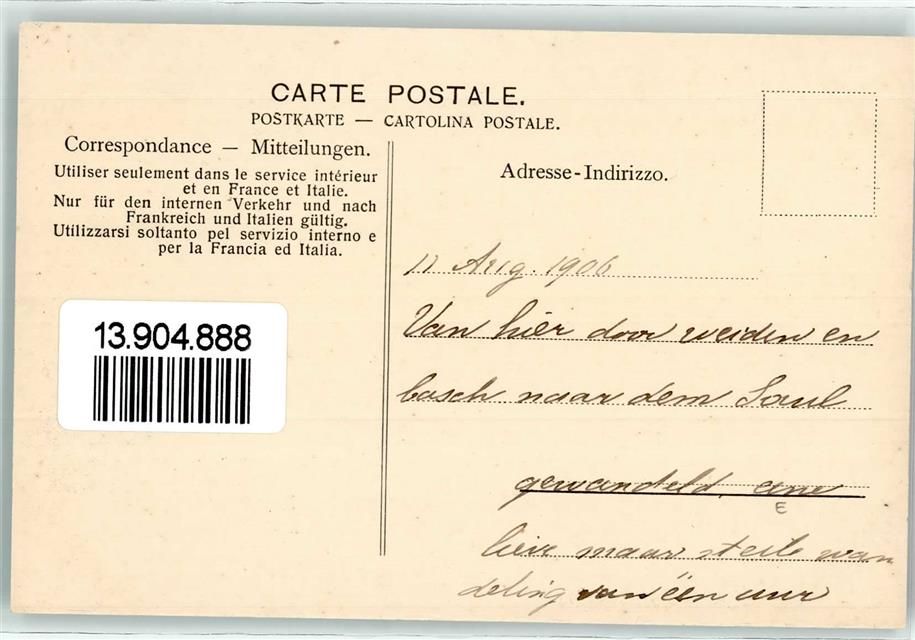 CARTE POSTALE.
POSTKARTE — CARTOLINA POSTALE.
Correspondance — Mitteilungen.
Utiliser seulement dans le service intérieur
et en France et Italie.
Nur für den internen Verkehr und nach
Frankreich und Italien gültig.
Utilizzarsi soltanto pel servizio interno e
per la Francia ed Italia.
13.904.888
Adresse-Indirizzo.
11 Aug. 1906
Van hier door weiden en
bosch naar dem Saul
gewandeld, eene
E
maar steile wan
deling van één uur